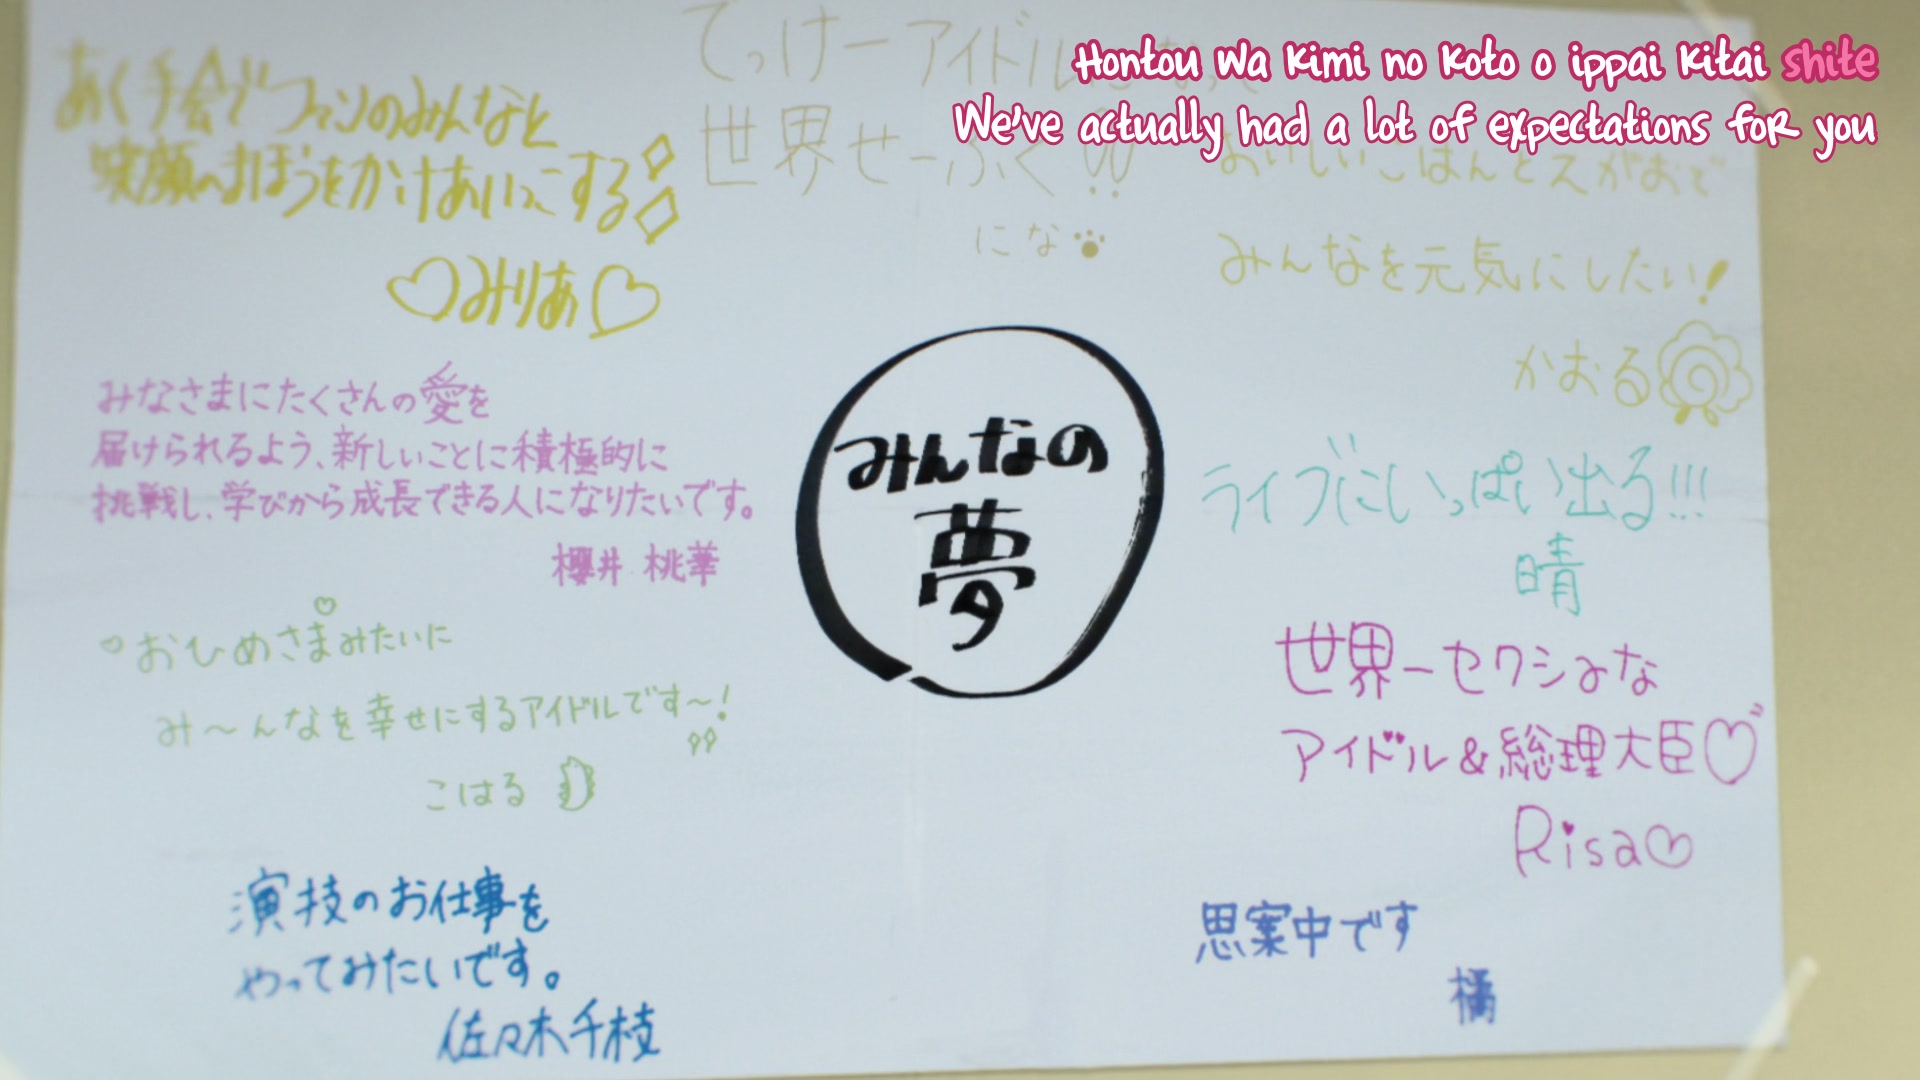 Hontou wa kimi no koto o ippai kitai shite
We've actually had a lot of expectations for you
あく手会でファンのみんなと
笑顔のまほうをかけあいっこする
みりあ
てっけーアイドルになって
世界せーふく!!
にな
おいしいごはんとえがおで
みんなを元気にしたい!
かおる
みなさまにたくさんの愛を
届けられるよう、新しいことに積極的に
挑戦し、学びから成長できる人になりたいです。
櫻井 桃華
みんなの
夢
ライブにいっぱい出る!!!
晴
おひめさまみたいに
み〜んなを幸せにするアイドルです〜!
こはる
世界一セクシーな
アイドル&総理大臣
Risa
演技のお仕事を
やってみたいです。
佐々木千枝
思案中です
橘